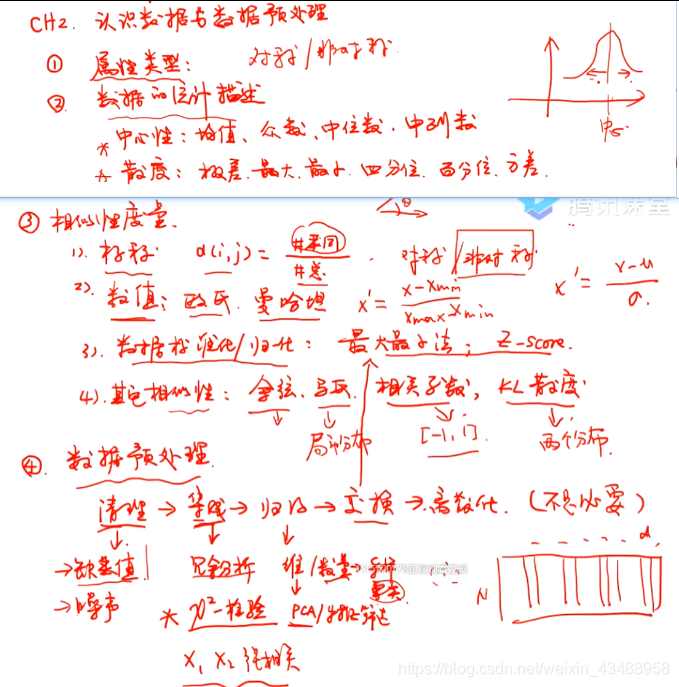 CH2. 认识数据与数据预处理
① 属性类型: 对称/非对称
② 数据的统计描述
* 中心性: 均值、众数、中位数、中列数
* 散度: 极差.最大.最小.四分位.百分位.方差.
中心
腾讯课堂
③ 相似性度量.
1). 标称 d(i,j) = #不同 / #总 对称/非对称
2). 数值: 欧氏. 曼哈坦 x' = x-xmin / xmax-xmin x' = x-u / σ.
3). 数据标准化/归一化: 最大最小法; Z-score.
4). 其它相似性: 余弦. 马氏. 相关系数, KL散度
[-1, 1]. 两个分布.
④. 数据预处理.
清理 → 集成 → 归约 → 变换 → 离散化. (不总必要)
→缺失值 冗余分析 维/数量
→噪声 * χ²-检验 PCA/
X₁ X₂ 强相关
N d
https://blog.csdn.net/weixin_43488958